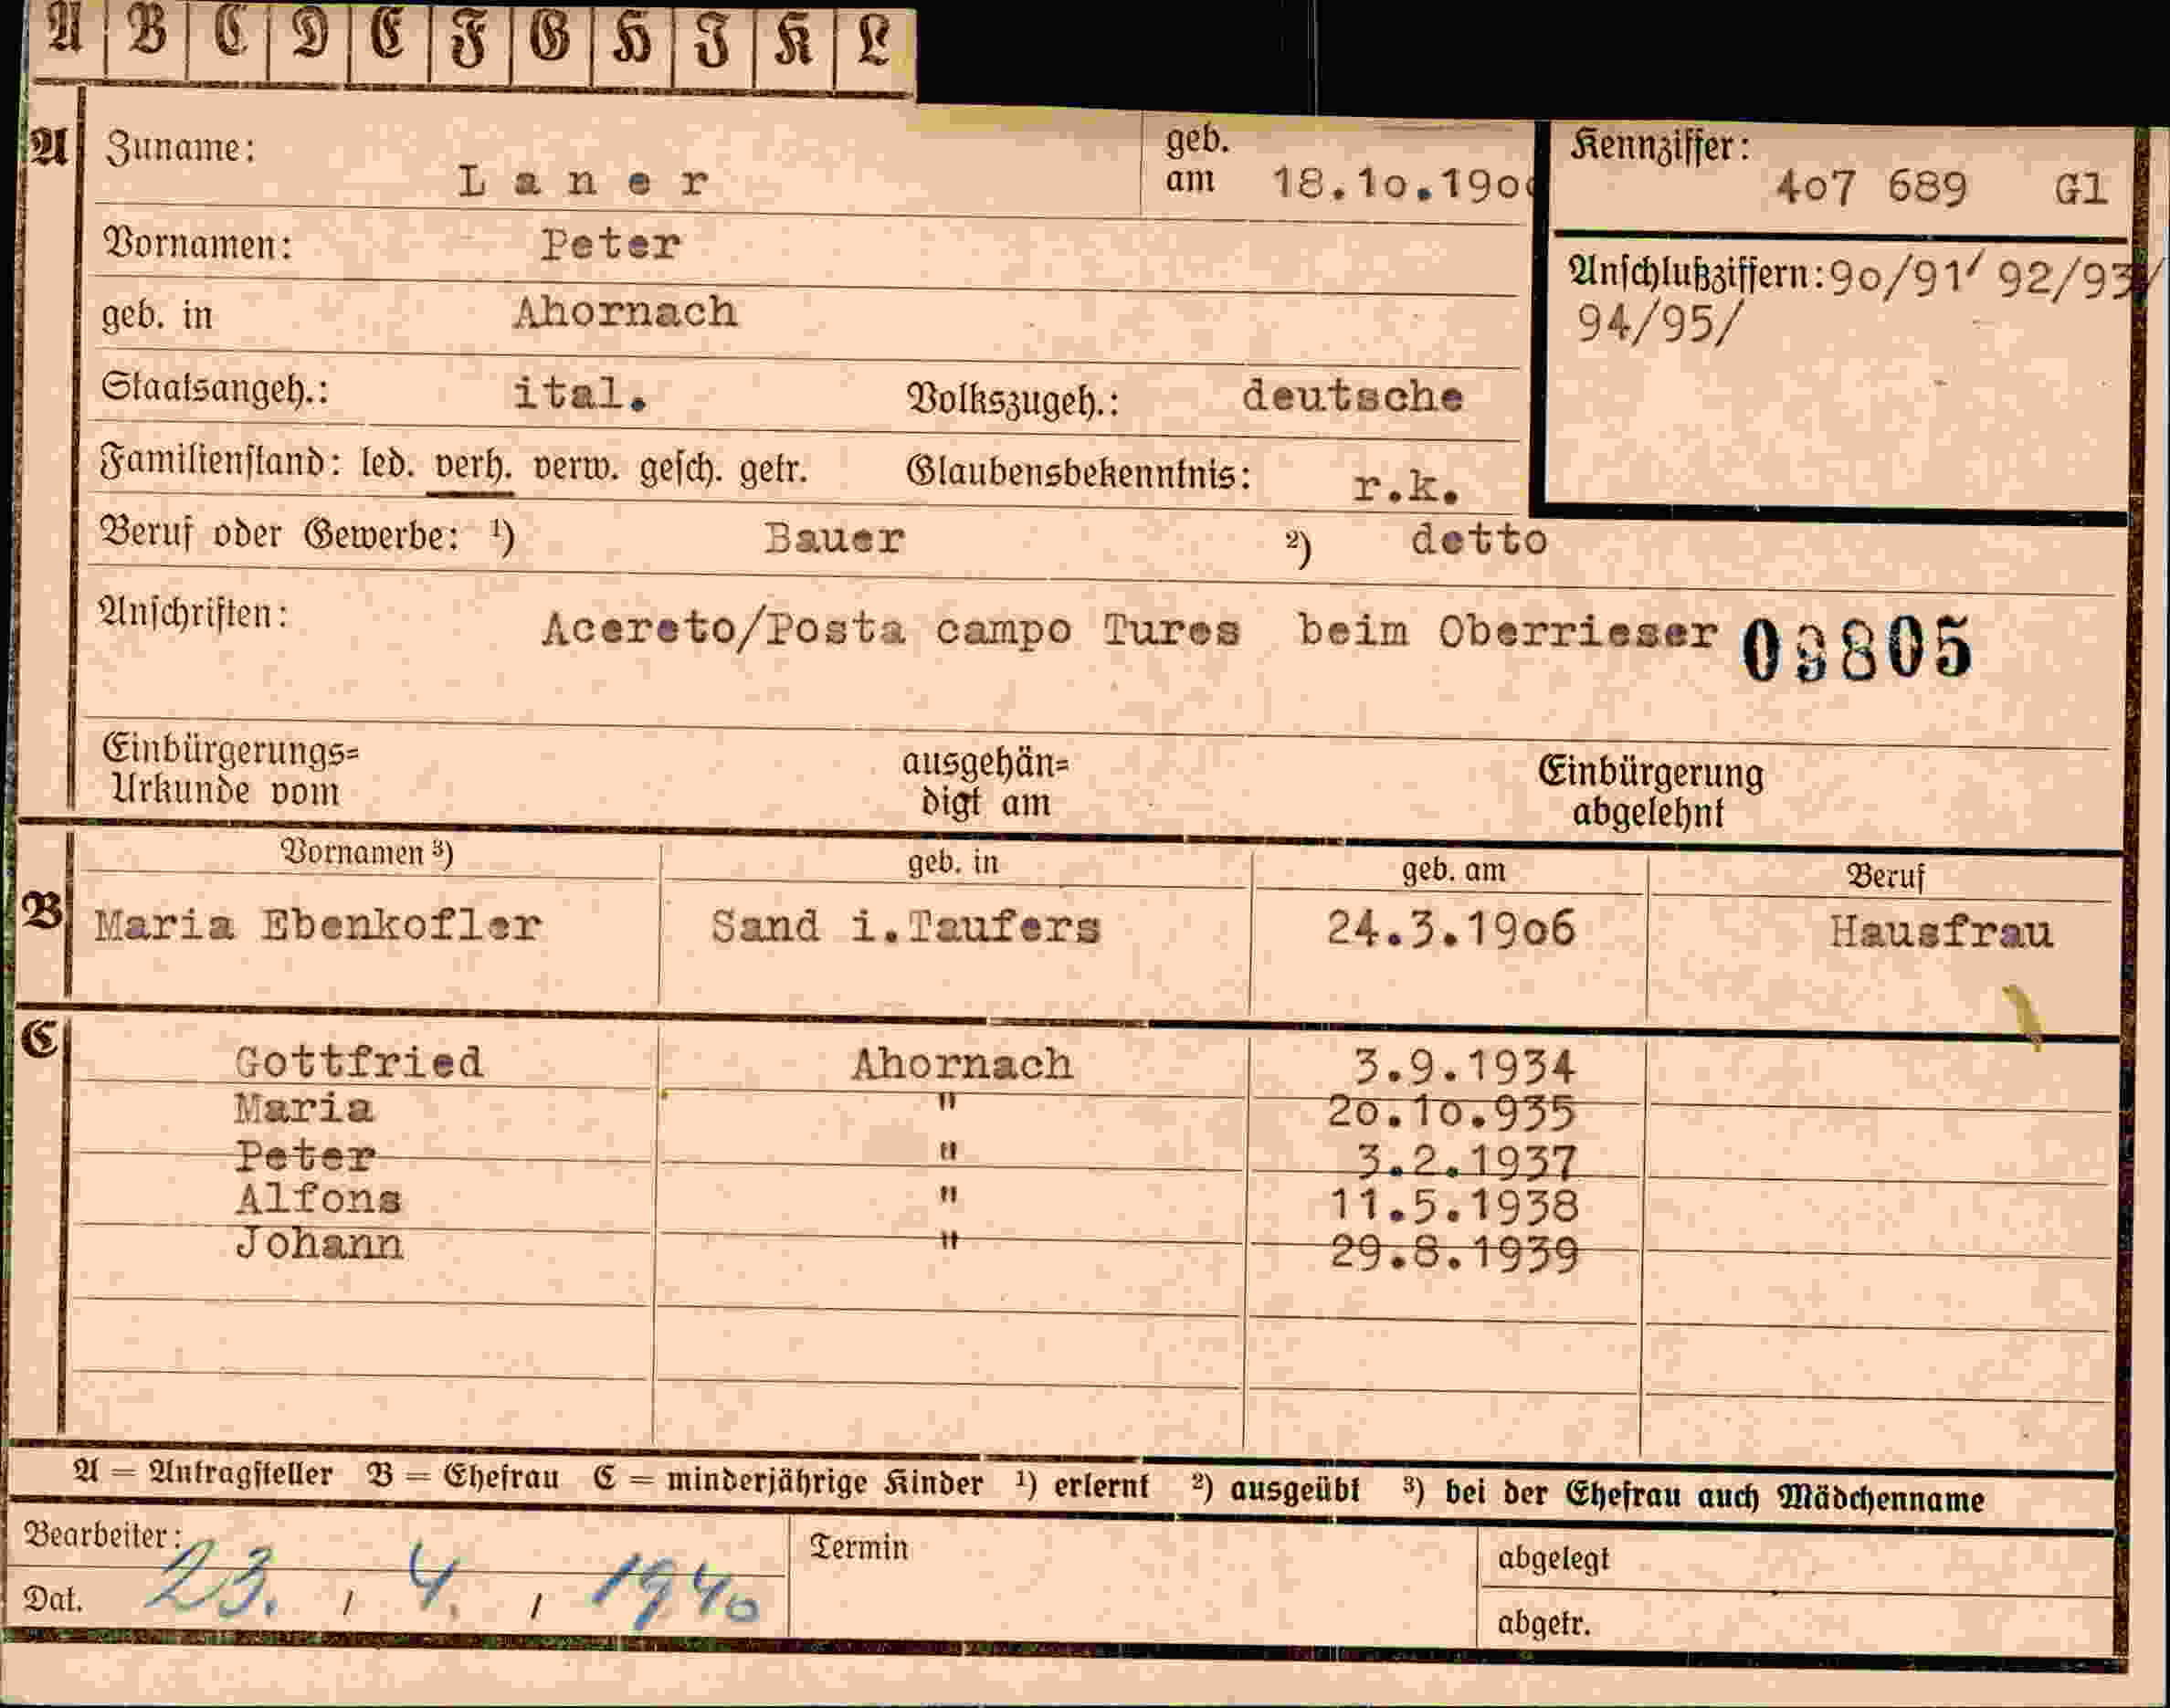 A B C D E F G H J K L
A Zuname: Laner geb. am 18.10.190
Kennziffer: 407 689 Gl
Vornamen: Peter
Anschlußziffern: 90/91/ 92/93/
94/95/
geb. in Ahornach
Staatsangeh.: ital. Volkszugeh.: deutsche
Familienstand: led. verh. verw. gesch. getr. Glaubensbekenntnis: r.k.
Beruf oder Gewerbe: 1) Bauer 2) detto
Anschriften: Acereto/Posta campo Tures beim Oberrieser 09805
Einbürgerungs= ausgehän= Einbürgerung
Urkunde vom digt am abgelehnt
Vornamen 3) geb. in geb. am Beruf
B Maria Ebenkofler Sand i.Taufers 24.3.1906 Hausfrau
C Gottfried Ahornach 3.9.1934
Maria " 20.10.935
Peter " 3.2.1937
Alfons " 11.5.1938
Johann " 29.8.1939
A = Antragsteller B = Ehefrau C = minderjährige Kinder 1) erlernt 2) ausgeübt 3) bei der Ehefrau auch Mädchenname
Bearbeiter: Termin abgelegt
Dat. 23. / 4. / 1940 abgetr.